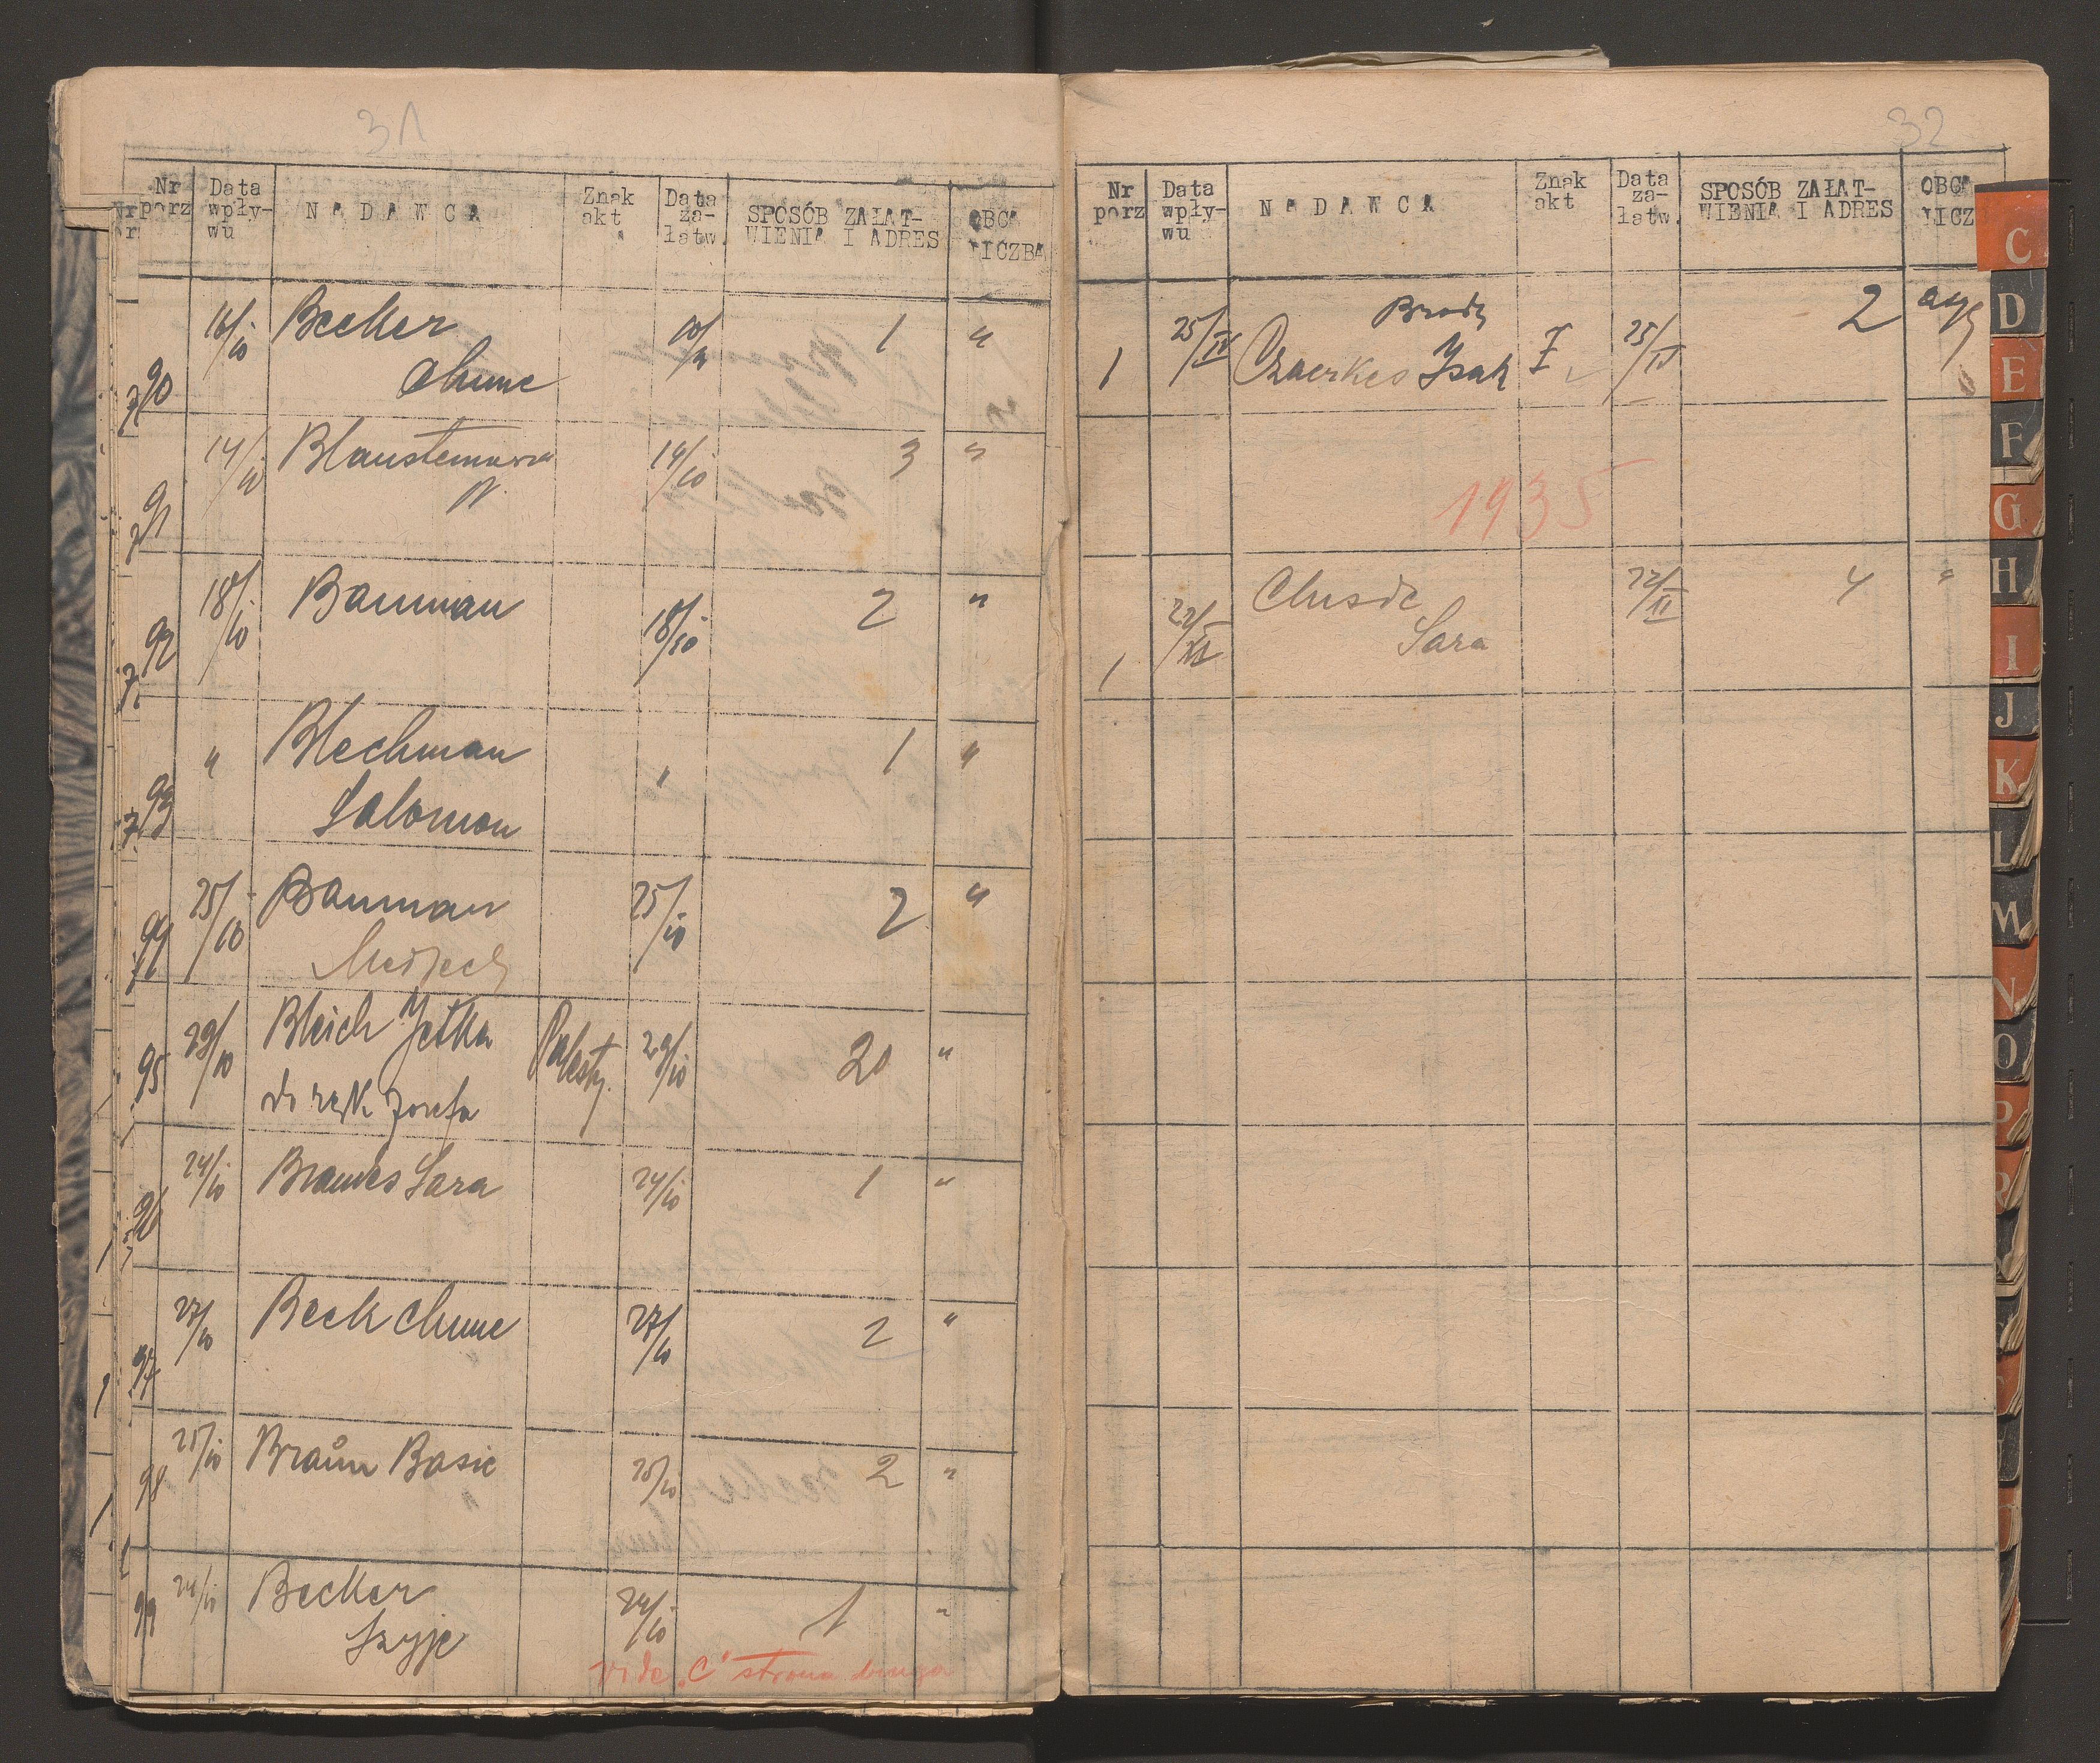 31
Nr porz
Data wpły-wu
NADAWCA
Znak akt
Data za-łatw.
SPOSÓB ZAŁAT-WIENIA I ADRES
OBCA LICZBA
90 16/10 Becker 1 "
Chune
91 14/10 14/10 3 "
92 18/10 Bauman 18/10 2 "
93 " Blechman " 1 "
Salomon
94 25/10 Bauman 25/10 2 "
95 29/10 Bleich Jetka Palesty. 29/10 20 "
do rąk Josefa
96 24/10 Sara 24/10 1 "
97 27/10 Beck Chune 27/10 2 "
98 25/10 Braun Basie 25/10 2 "
99 24/10 Becker 24/10 1 "
Szyje
vide "C" strona druga
32
Nr porz
Data wpły-wu
NADAWCA
Znak akt
Data za-łatw.
SPOSÓB ZAŁAT-WIENIA I ADRES
OBCA LICZ
Brody
1 25/IV Czaerkes Isak 25/IV 2
1935
Chusic 22/II 4 "
1 Sara
C
D
E
F
G
H
I
J
K
L
M
N
O
P
R